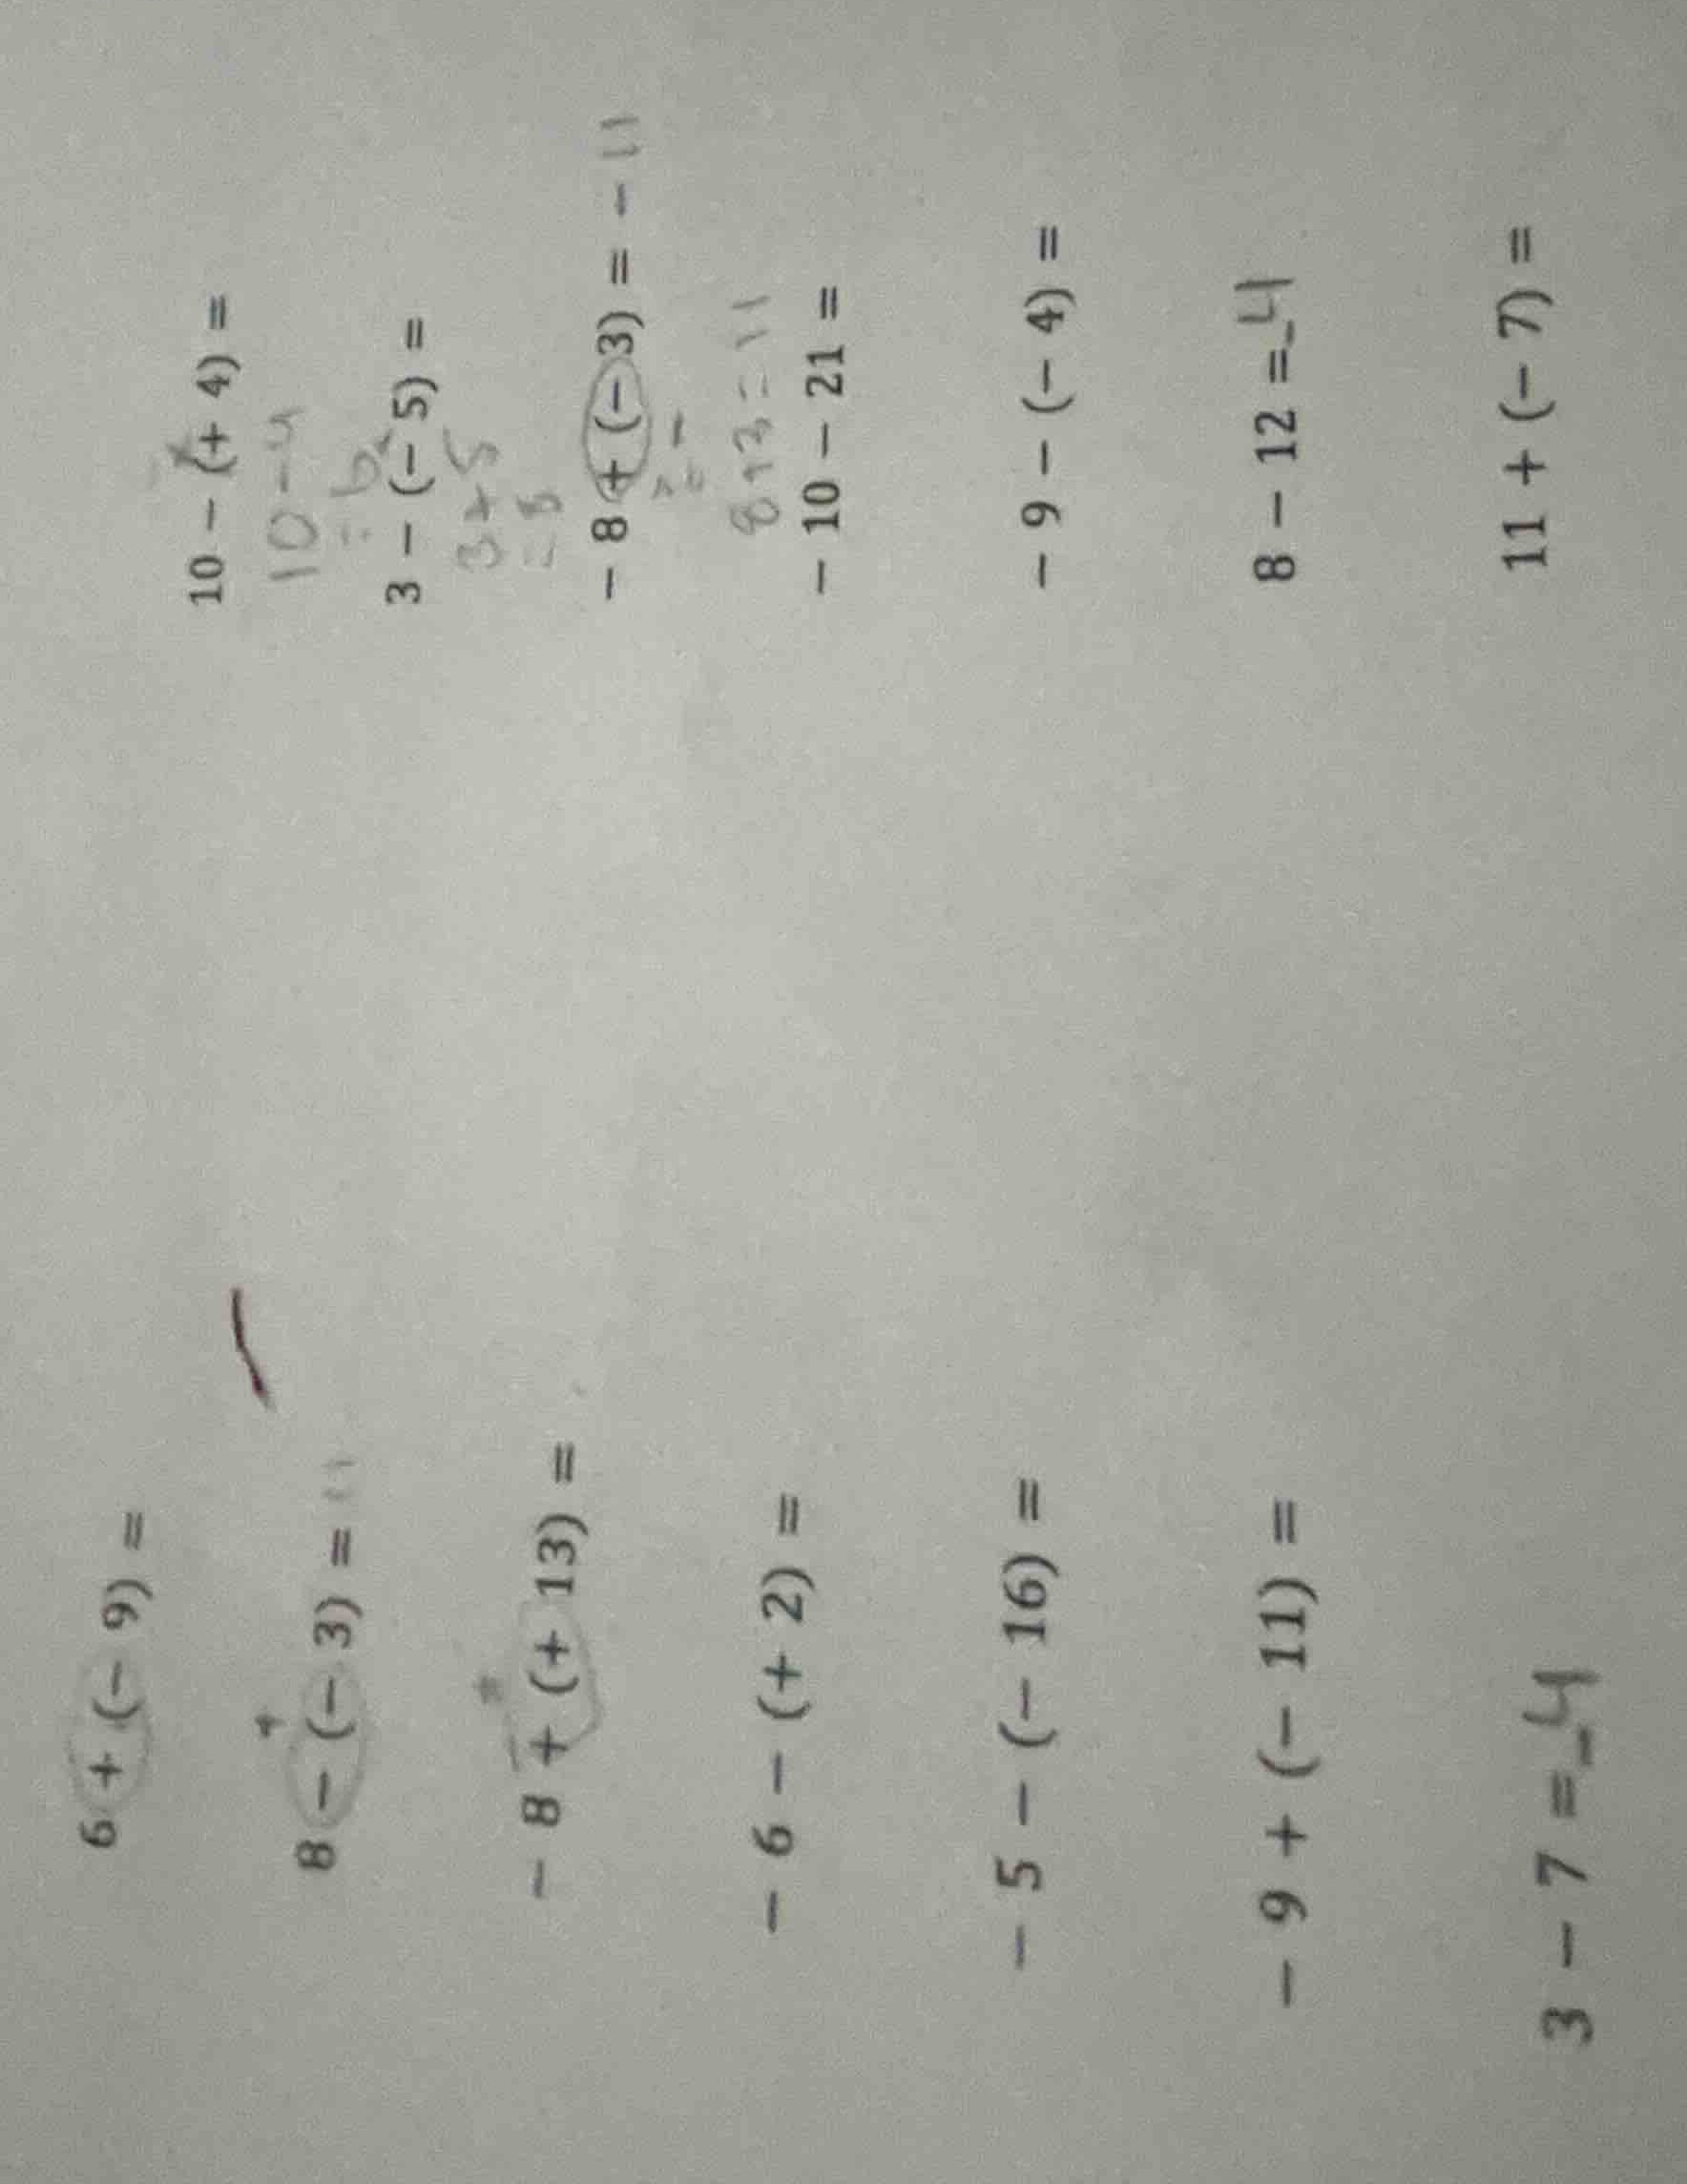 6 + (- 9) =
+
8 - (- 3) = 11
- 8 + (+ 13) =
- 6 - (+ 2) =
- 5 - (- 16) =
- 9 + (- 11) =
3 - 7 = -4
10 - (+ 4) =
10 - 4
= 6
3 - (- 5) =
3 + 5
= 8
- 8 + (- 3) = - 11
= -
8 + 3 = 11
- 10 - 21 =
- 9 - (- 4) =
8 - 12 = -4
11 + (- 7) =